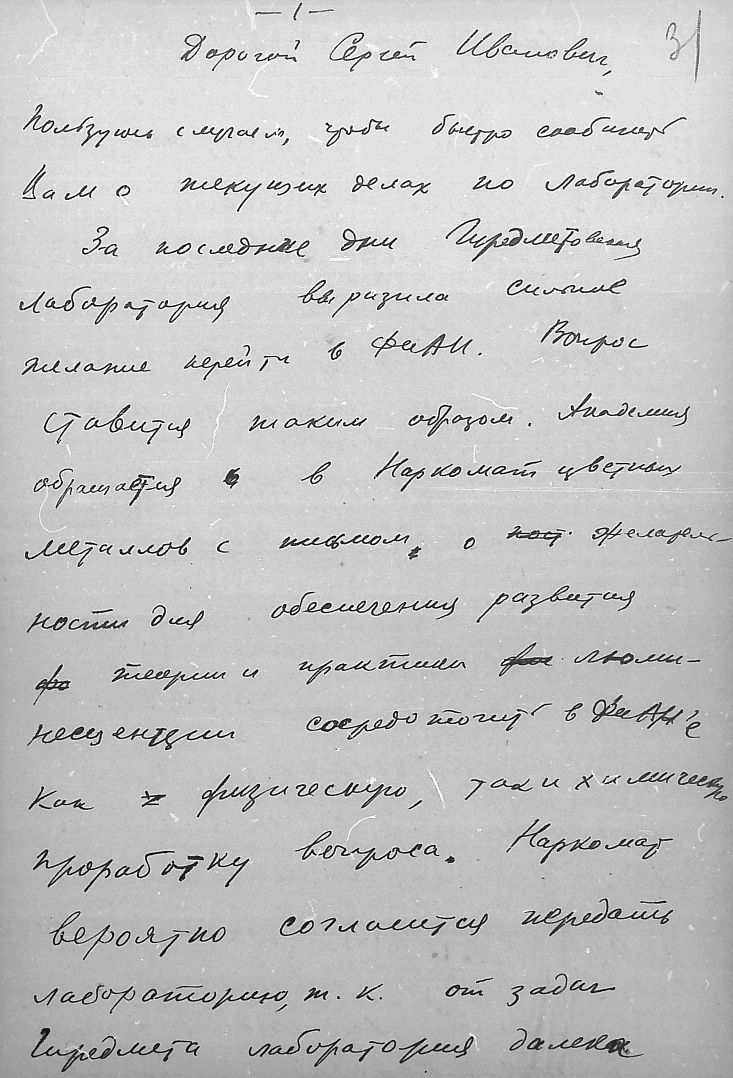 – 1 –
31
Дорогой Сергей Иванович,
Пользуюсь случаем, чтобы быстро сообщить
Вам о текущих делах по лаборатории.
За последние дни Гиредметовская
лаборатория выразила сильное
желание перейти в ФИАН. Вопрос
ставится таким образом. Академия
обращается в Наркомат цветных
металлов с письмом, о пост. желатель-
ности для обеспечения развития
фо теории и практики люми-
несценции сосредоточить в ФИАН'е
как физическую, так и химическую
проработку вопроса. Наркомат
вероятно согласится передать
лабораторию, т. к. от задач
Гиредмета лаборатория далека